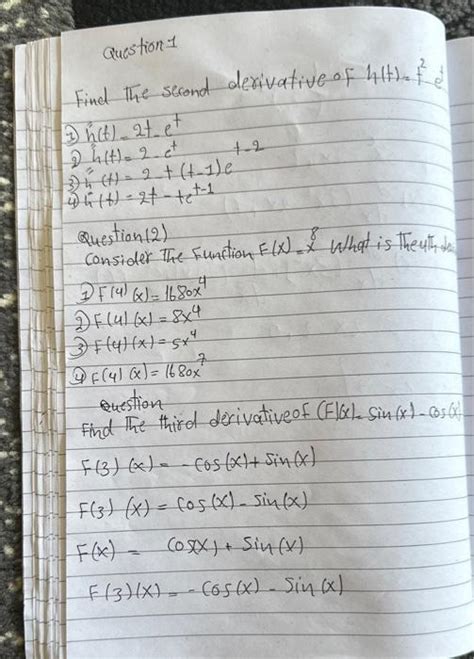 Question 1
Find The second derivative of h(t) = t² - eᵗ
1) ḧ(t) = 2t - eᵗ
2) ḧ(t) = 2 - eᵗ
3) ḧ(t) = 2 + (t-1)e^t-2
4) ḧ(t) = 2t - te^t-1
Question(2)
Consider The Function F(x) = x⁸ What is The 4th
1) F(4)(x) = 1680x⁴
2) F(4)(x) = 8x⁴
3) F(4)(x) = 5x⁴
4) F(4)(x) = 1680x⁷
Question
Find The third derivative of (F)(x) = Sin(x) - Cos(x)
F(3)(x) = -Cos(x) + Sin(x)
F(3)(x) = Cos(x) - Sin(x)
F(x) = Cos(x) + Sin(x)
F(3)(x) = -Cos(x) - Sin(x)